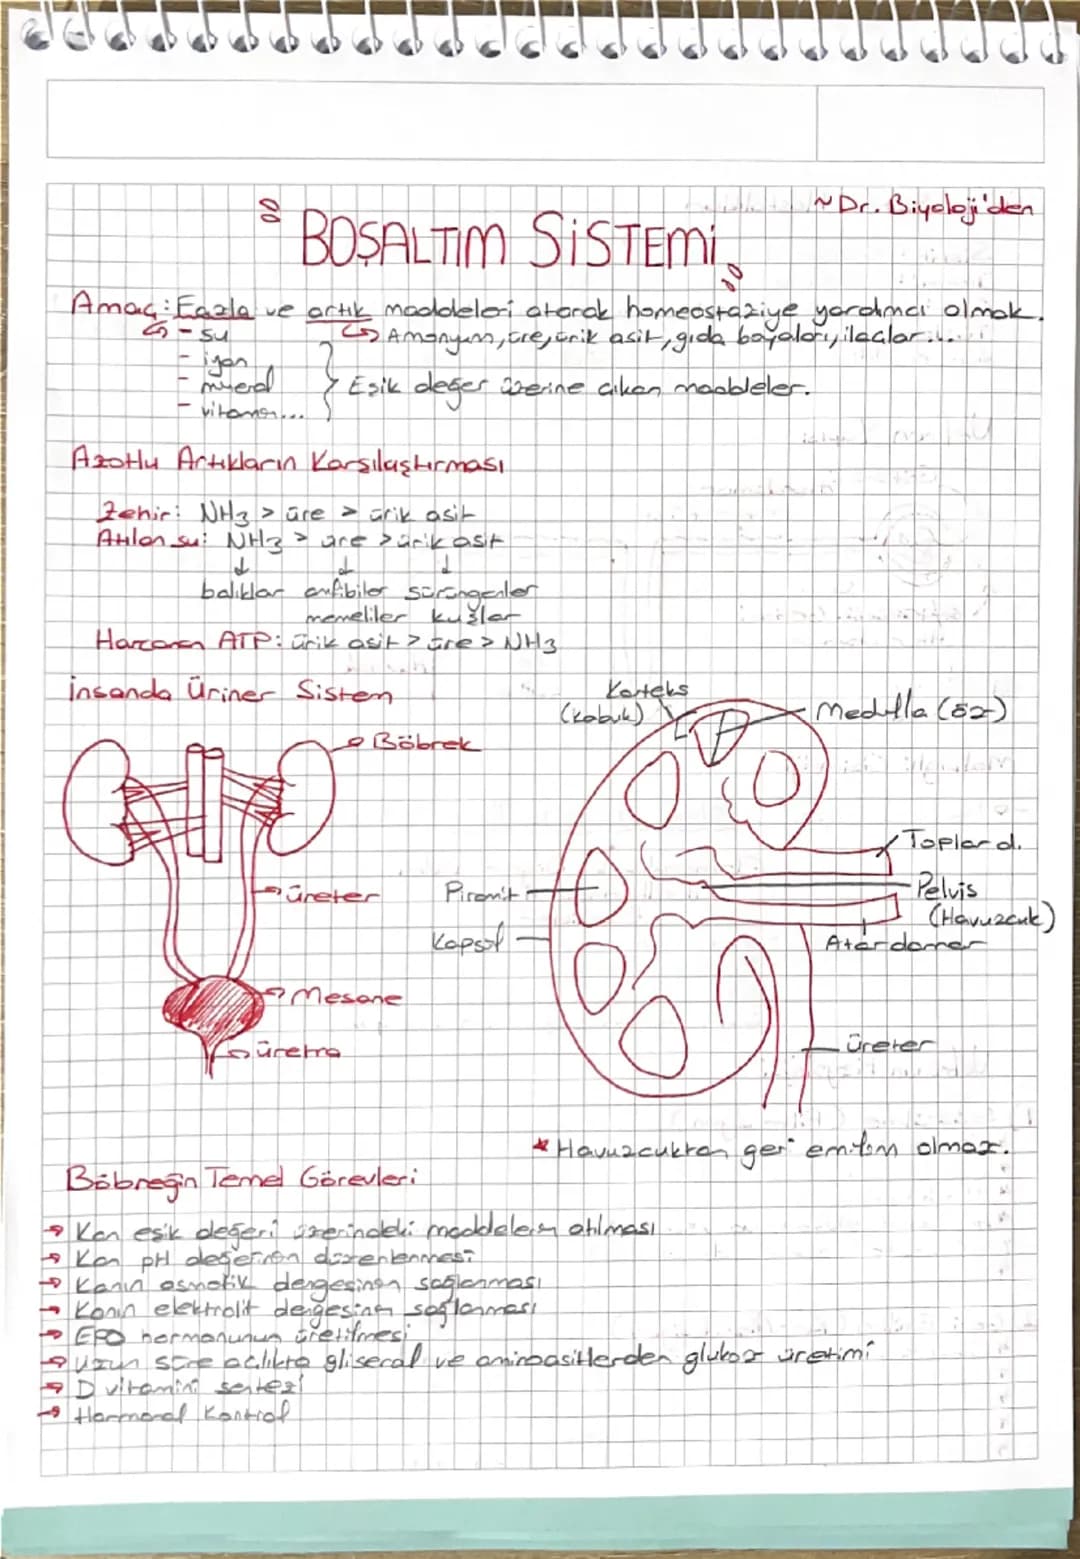 ~Dr. Biyoloji'den
BOŞALTIM SİSTEMİ
Amaç: Fazla ve artık maddeleri atarak homeostaziye yardımcı olmak.
- su
Amonyum, üre, ürik asit, gıda boyaları, ilaçlar...
- iyon
- mineral
- vitamin...
Eşik değer üzerine çıkan maddeler.
Azotlu Artıkların Karşılaştırması
Zehir: NH3 > üre > ürik asit
Atılan su: NH3 > üre > ürik asit
balıklar anfibiler sürüngenler
memeliler kuşlar
Harcanan ATP: ürik asit > üre > NH3
İnsanda Üriner Sistem
Böbrek
üreter
Mesane
üretra
Korteks
(kabuk)
Medulla (öz)
Toplar d.
Piramit
Pelvis
(Havuzcuk)
Kapsül
Atardamar
üreter
* Havuzcuktan geri emilim olmaz.
Böbreğin Temel Görevleri
→ Kan eşik değeri üzerindeki maddelerin atılması
→ Kan pH değerinin düzenlenmesi
→ Kanın osmotik dengesinin sağlanması
→ Kanın elektrolit dengesinin sağlanması
→ EPO hormonunun üretilmesi
→ Uzun süre açlıkta gliserol ve aminoasitlerden glukoz üretimi
→ D vitamini sentezi
→ Hormonal Kontrol